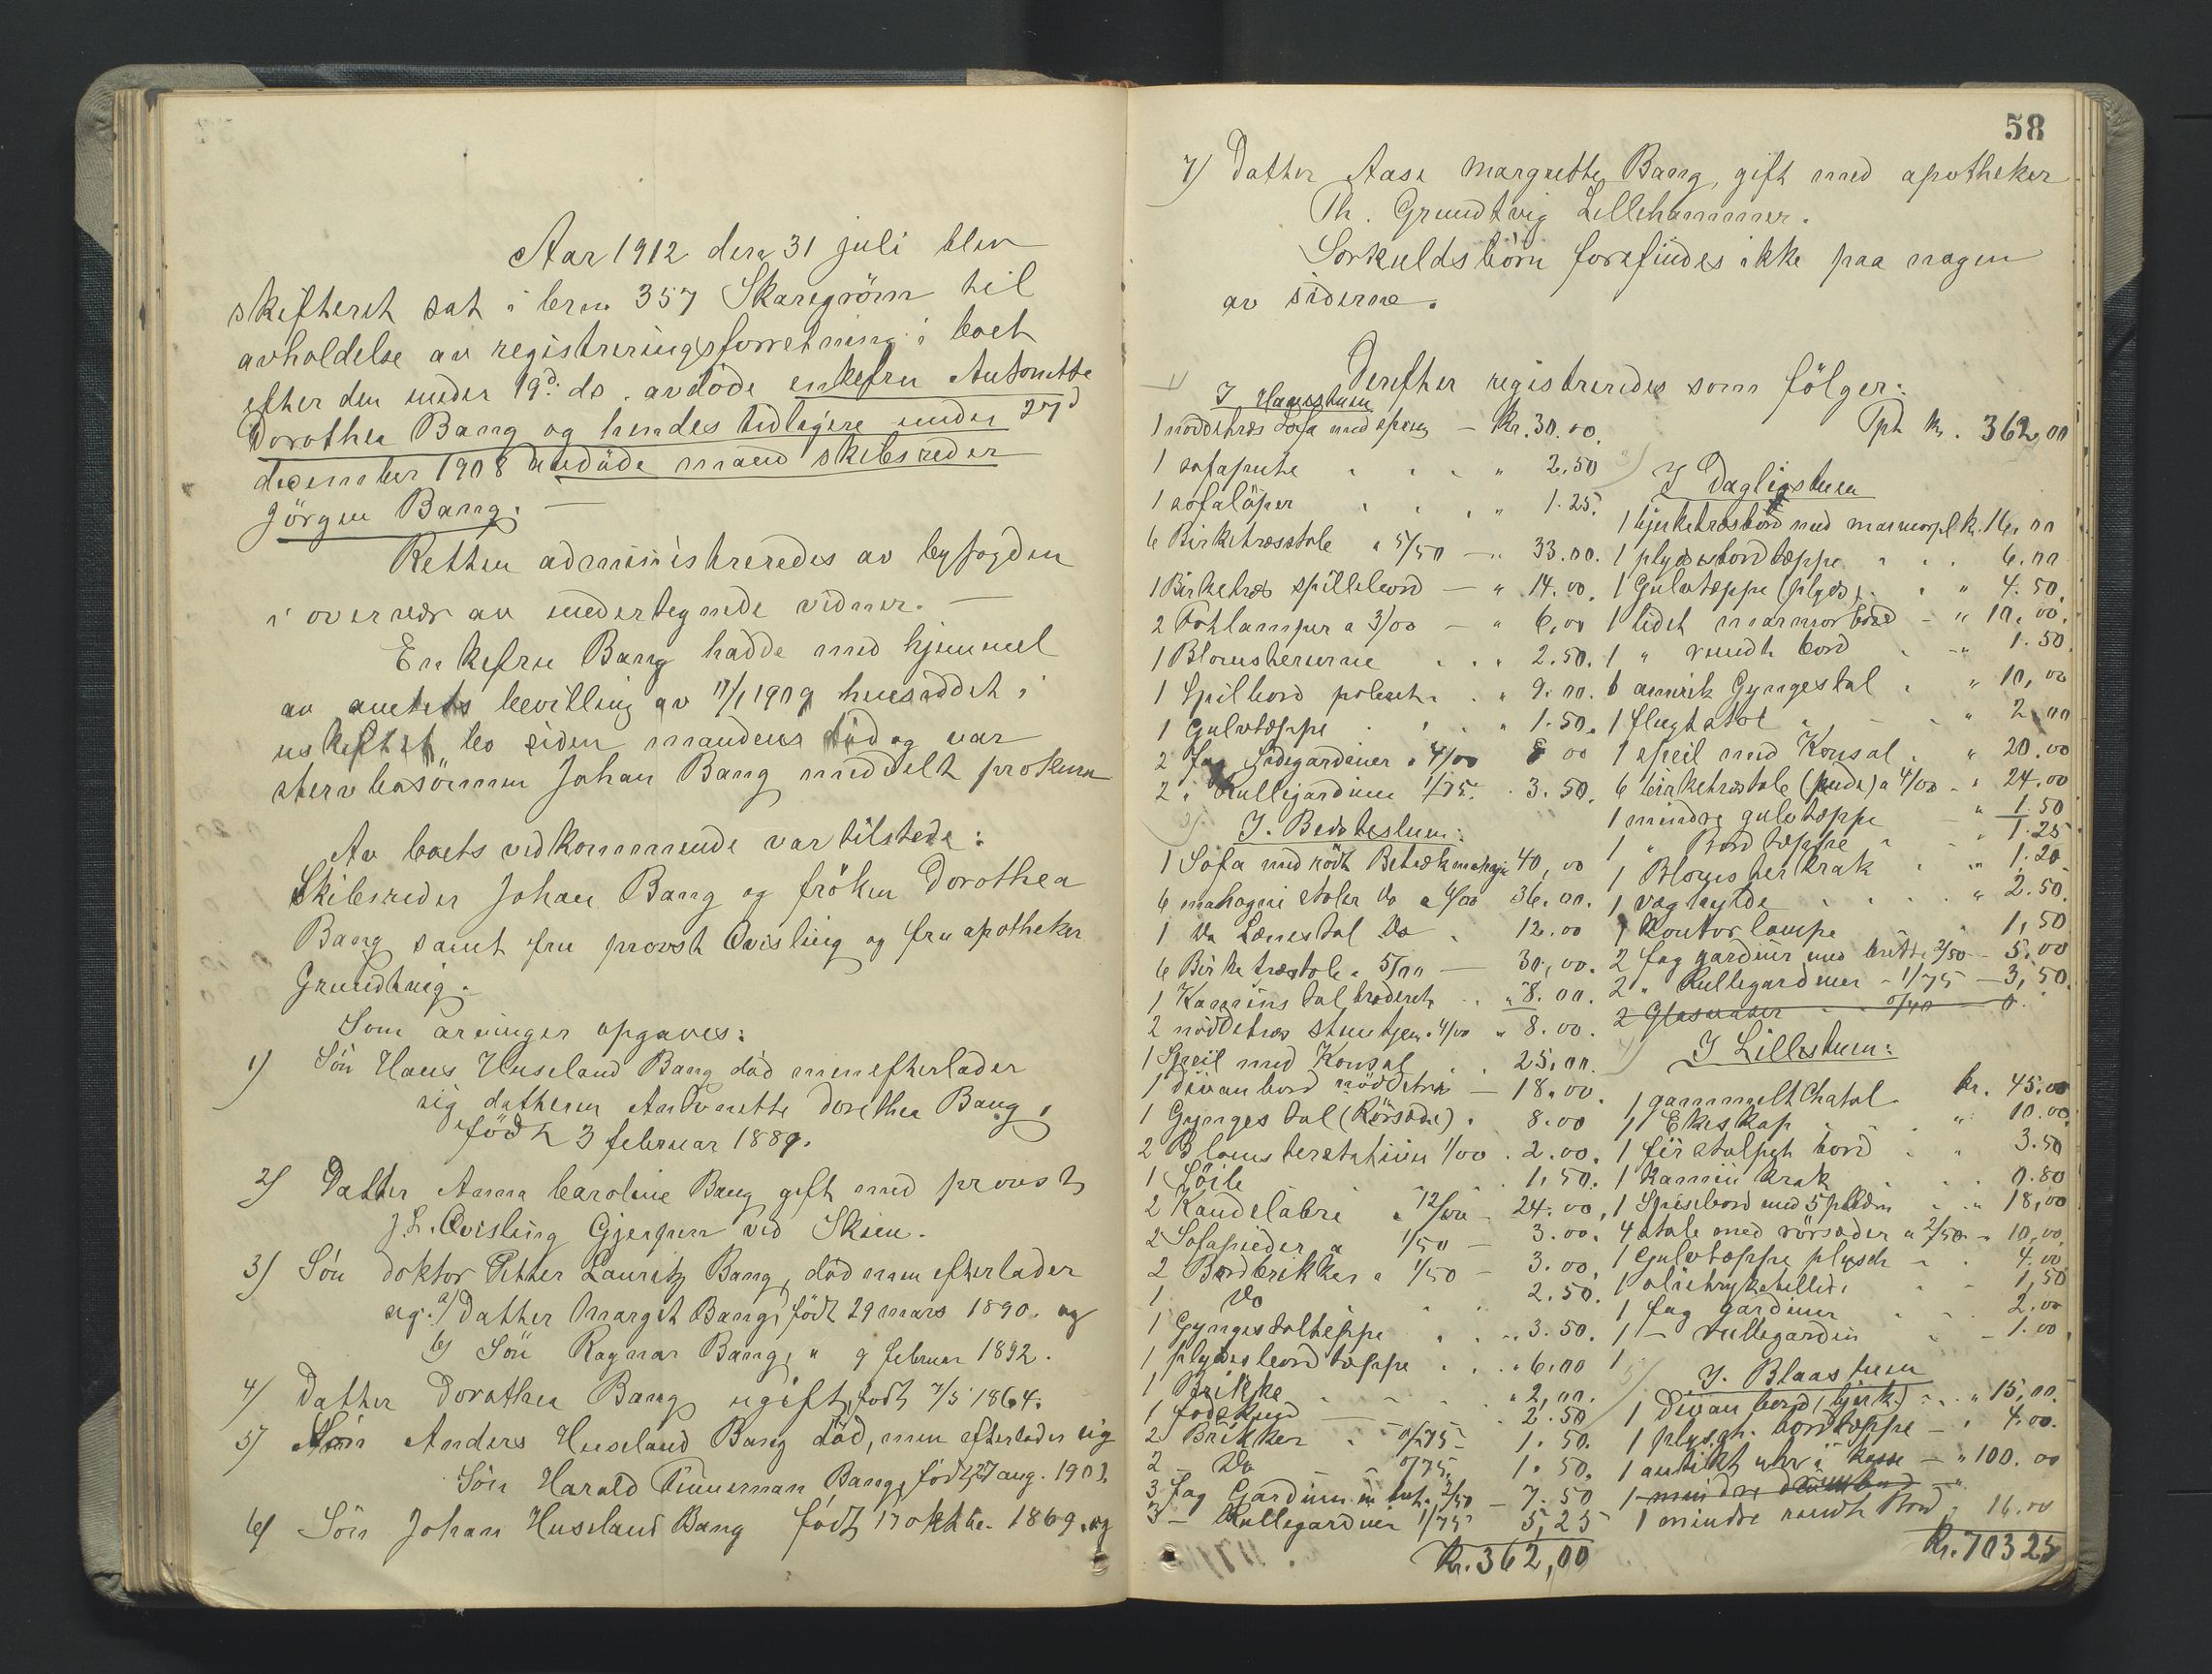 Aar 1912 den 31 juli blev
skifteret sat i brm 357 Skaregrøm til
avholdelse av registreringsforretning i boet
efter den under 19d. ds. avdöde enkefru Antonette
Dorothea Bang og hendes tidligere under 27d
december 1908 avdöde mand skibsreder
Jörgen Bang. —
Retten administreredes av byfogden
i overvær av undertegnede vidner. —
Enkefru Bang hadde med hjemmel
av amtets bevilling av 11/1 1909 hensiddet i
uskiftet bo siden mandens död og var
stervbosönnen Johan Bang meddelt prokura
Av boets vedkommende var tilstede:
Skibsreder Johan Bang og fröken Dorothea
Bang samt fru provst Qvisling og fru apotheker
Grundtvig.
Som arvinger opgaves:
1) Sön Hans Huseland Bang död men efterlader
sig datteren Antonette Dorethea Bang,
födt 3 februar 1889.
2) Datter Anna Caroline Bang gift med provst
J.L. Qvisling Gjerpen ved Skien.
3) Sön doktor Petter Lauritz Bang, död men efterlader
sig: a) Datter Margit Bang, födt 29 mars 1890. og
b) Sön Ragnar Bang, " 9 februar 1892.
4) Datter Dorothea Bang ugift, födt 7/5 1864.
5) Sön Anders Huseland Bang död, men efterlader sig
Sön Harald Timmerman Bang, födt 27 aug. 1901.
6) Sön Johan Huseland Bang födt 17 oktbr. 1869. og
58
7) Datter Aase Margrethe Bang, gift med apotheker
Th. Grundtvig Lillehammer.
Særkuldsbörn forefindes ikke paa nogen
av siderne.
Derefter registreredes som fölger:
1) I Havestuen
1 nöddetræs Sofa med spring — Kr. 30.00.
1 sofapute " 2.50
1 sofalöper " 1.25.
6 Birketræsstole a 5/50 — " 33.00.
1 Birketræs spillebord — " 14.00.
2 Fotlamper a 3/00 — " 6,00
1 Blomsterurne " 2.50.
1 Spilbord poleret " 9.00.
1 Gulvtæppe " 1.50.
2 fag Sidegardiner a 4/00 8 00
2 " Rullegardiner 1/75. 3.50.
2) I. Bedstestuen:
1 Sofa med rödt Betræk mahogni 40,00
6 mahogni stoler do a 6/00 36.00.
1 do Lænestol Do 12.00
6 Birketræstole a 5/00 — 30,00.
1 Kaminstol broderet " 8.00.
2 nöddetræs stumtjen. a 4/00 " 8.00.
1 Speil med Konsol 25,00.
1 divanbord nöddetræ — 18.00.
1 Gyngestol (Rörsæde) 8.00
2 Blomsterstativer 1/00 2.00.
1 Söile 1,50.
2 Kandelabre a 12/00 24.00,
2 Sofapuder a 1/50 — 3.00.
2 Bordbrikker a 1/50 — 3.00,
1 Do 2.50.
1 Gyngestoltæppe " 3.50.
1 plydsbordtæppe " 6.00
1 Brikke " 2,00.
1 fodskind — " 2.50
2 Brikker " 0/75 1.50.
2 — Do — " 0/75. 1.50.
3 fag Gardiner m bret. 2/50 — 7.50
3 — Rullegardiner 1/75 5,25
Kr. 362,00
Tpt Kr. 362,00
3) I Dagligstuen
1 bjerketræsbord med marmorpl. kr. 16,00
1 plydsbordtæppe " 6.00
1 Gulvtæppe (plyds) " 4.50.
1 lidet marmorbord — " 10.00.
1 " rundt bord — " 1.50.
1 amrik Gyngestol " 10,00
1 flugtstol " 2.00
1 speil med Konsol " 20.00
6 birketræstole (pude) a 4/00 — " 24.00
1 mindre gulvtæppe — " 1.50
1 " Bordtæppe " " 1.25
1 Blomsterkrak " 1.20
1 væghylde " 2.50.
1 Kontorlampe 1,50
2 fag gardiner med bretter 2/50 — 5.00
2 " Rullegardiner — 1/75 — 3,50.
2 Glasvaser 0/40 0.
4) I Lillestuen:
1 gammelt Chatol kr. 45.00
1 Ekeskap " 10.00
1 firstolpet bord " 3.50
1 Kaminkrak 0.80
1 Spisebord med 5 plader " 18,00
4 stole med rörsæder a 2/50 " 10,00
1 Gulvtæppe plysch " 4.00
1 olietrykbillede 1,50
1 fag gardiner 2.00
1 — rullegardin — 1.00
1
5) I. Blaastuen
1 Divanbord (bjerk.) " 15,00
1 plysch. bordtæppe — " 4.00.
1 antikt uhr i kasse — " 100.00
1 mindre rundt Bord " 16.00
Kr. 703 25